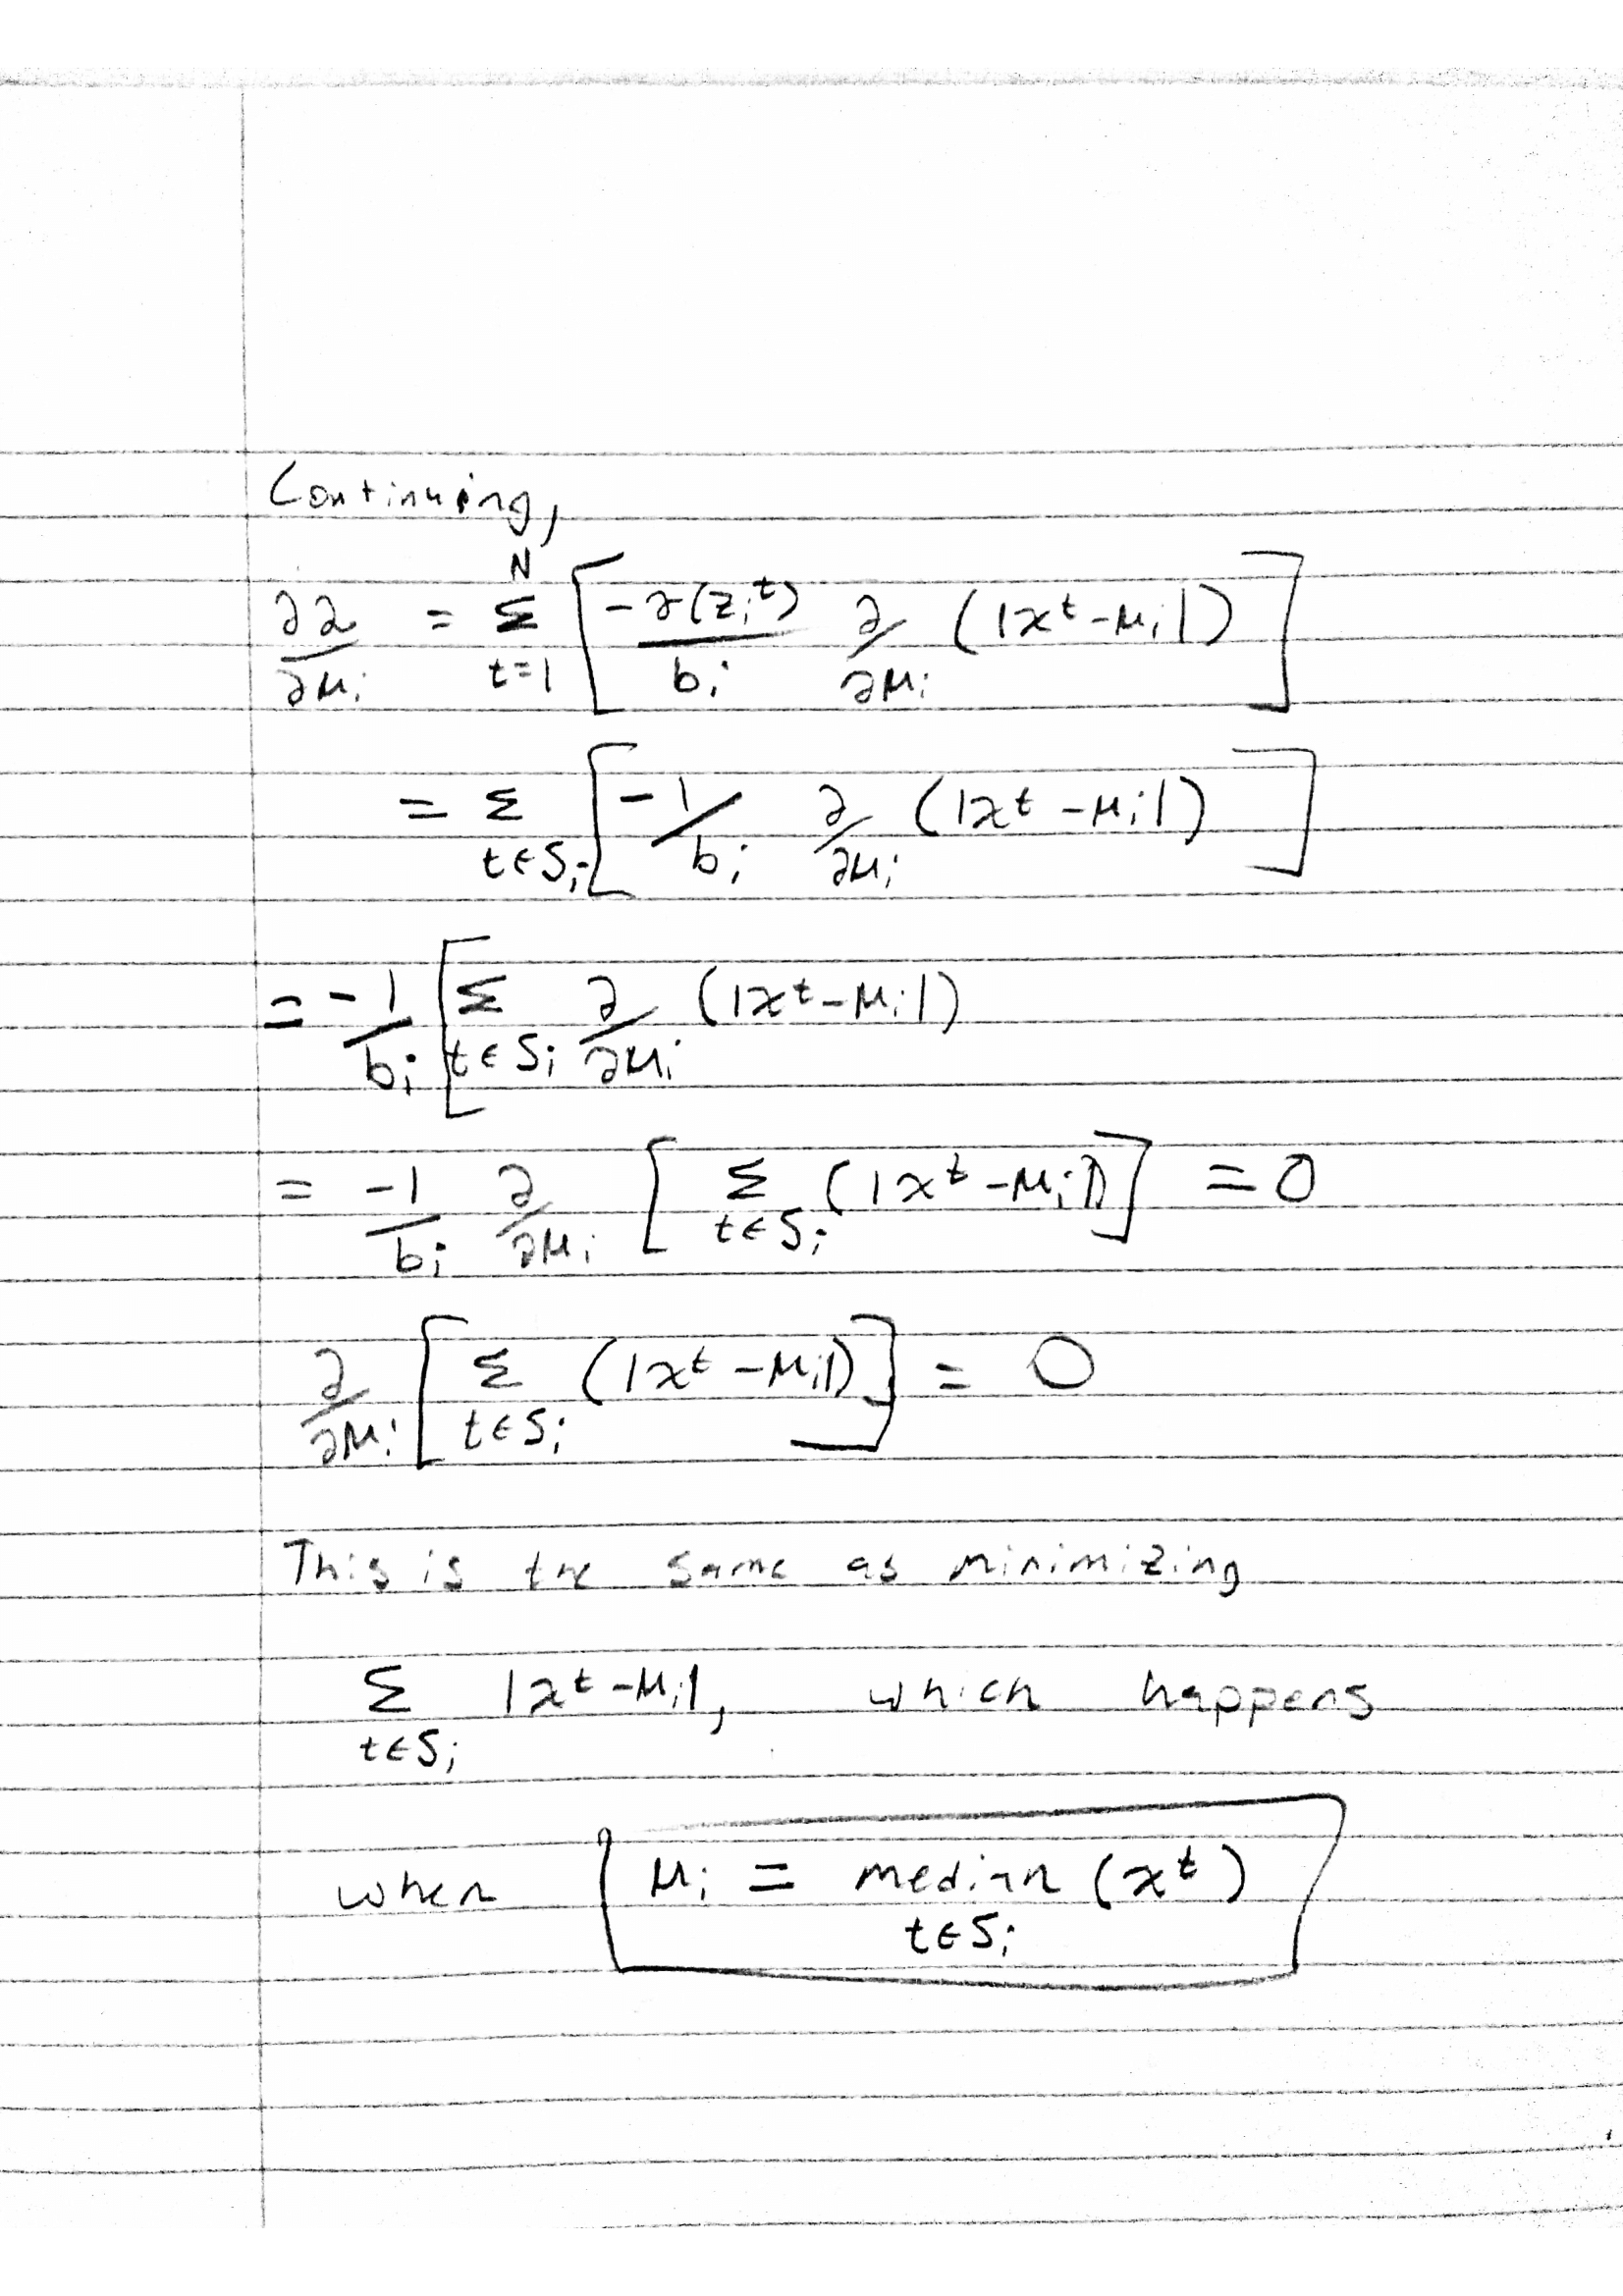 Continuing,
∂ℒ/∂μᵢ = Σ_{t=1}^{N} [ -γ(zᵢᵗ)/bᵢ ∂/∂μᵢ (|xᵗ-μᵢ|) ]
= Σ_{t∈Sᵢ} [ -1/bᵢ ∂/∂μᵢ (|xᵗ-μᵢ|) ]
= -1/bᵢ [ Σ_{t∈Sᵢ} ∂/∂μᵢ (|xᵗ-μᵢ|)
= -1/bᵢ ∂/∂μᵢ [ Σ_{t∈Sᵢ} (|xᵗ-μᵢ|) ] = 0
∂/∂μᵢ [ Σ_{t∈Sᵢ} (|xᵗ-μᵢ|) ] = 0
This is the same as minimizing
Σ_{t∈Sᵢ} |xᵗ-μᵢ|, which happens
when μᵢ = median_{t∈Sᵢ} (xᵗ)